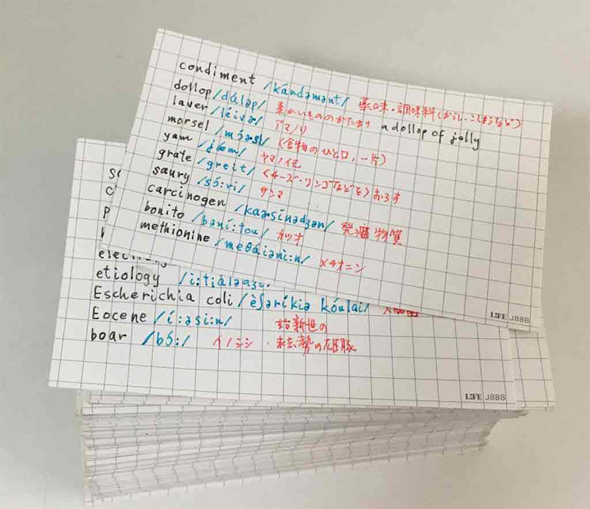 condiment /kándəmənt/ 薬味・調味料(からし・こしょうなど)
dollop /dáləp/ 柔かいもののかたまり a dollop of jolly
laver /léivə/ アマノリ
morsel /mɔ́əsl/ (食物のひと口, 一片)
yam /jǽm/ ヤマノイモ
grate /greit/ くチーズ・リンゴなどを〉おろす
saury /sɔ́:ri/ サンマ
carcinogen /kaəsínədʒən/ 発癌物質
bonito /bəní:tou/ カツオ
methionine /meθáiəni:n/ メチオニン
LIFE J888
etiology /i:tiáləd
Escherichia coli /èʃəríkiə kóulai/
Eocene /í:əsi:n/ 始新世の
boar /bɔ́:/ イノシシ・未去勢の雄豚
LIFE J888